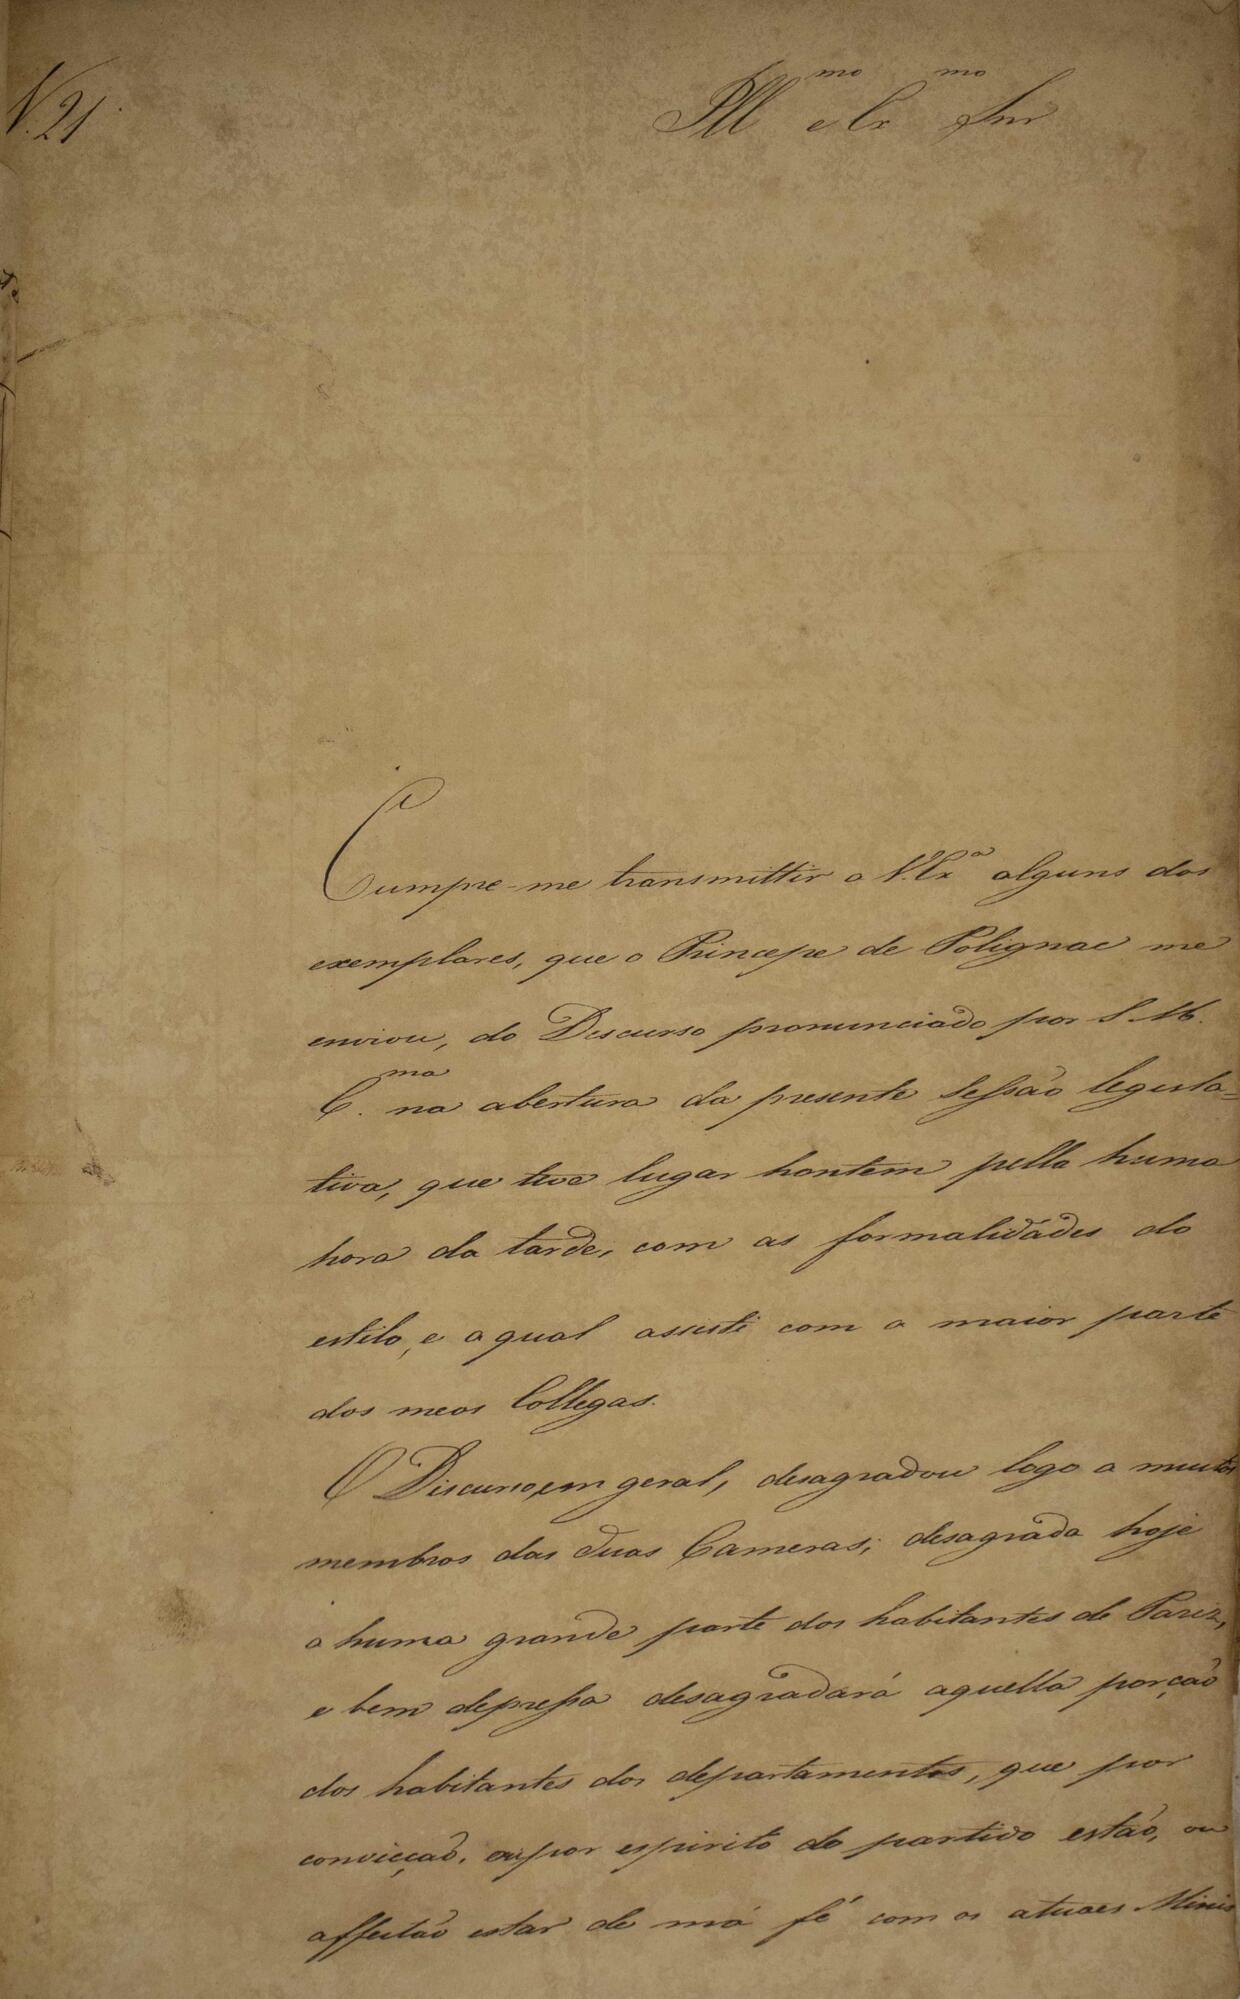 N. 21.
Ill.mo e Ex.mo Snr
Cumpre-me transmittir a V. Ex.a alguns dos
exemplares, que o Princepe de Polignac me
enviou, do Discurso pronunciado por S. M.
C.ma na abertura da presente Sessão legisla=
tiva, que teve lugar hontem pella huma
hora da tarde, com as formalidades do
estilo, e a qual assisti com a maior parte
dos meos Collegas.
O Discurso, em geral, desagradou logo a muitos
membros das duas Cameras; desagrada hoje
a huma grande parte dos habitantes de Pariz,
e bem depressa desagradará aquella porção
dos habitantes dos departamentos, que por
convicção, ou por espirito de partido estão, ou
affectão estar de má fé com os atuaes Minis